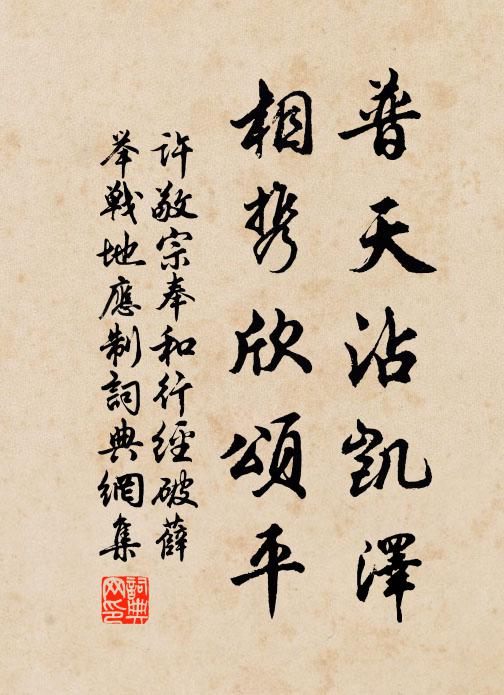 普天沾凱澤
相携欣頌平
許敬宗奉和行經破薛
举戰地應制詞典網集
詞典網印